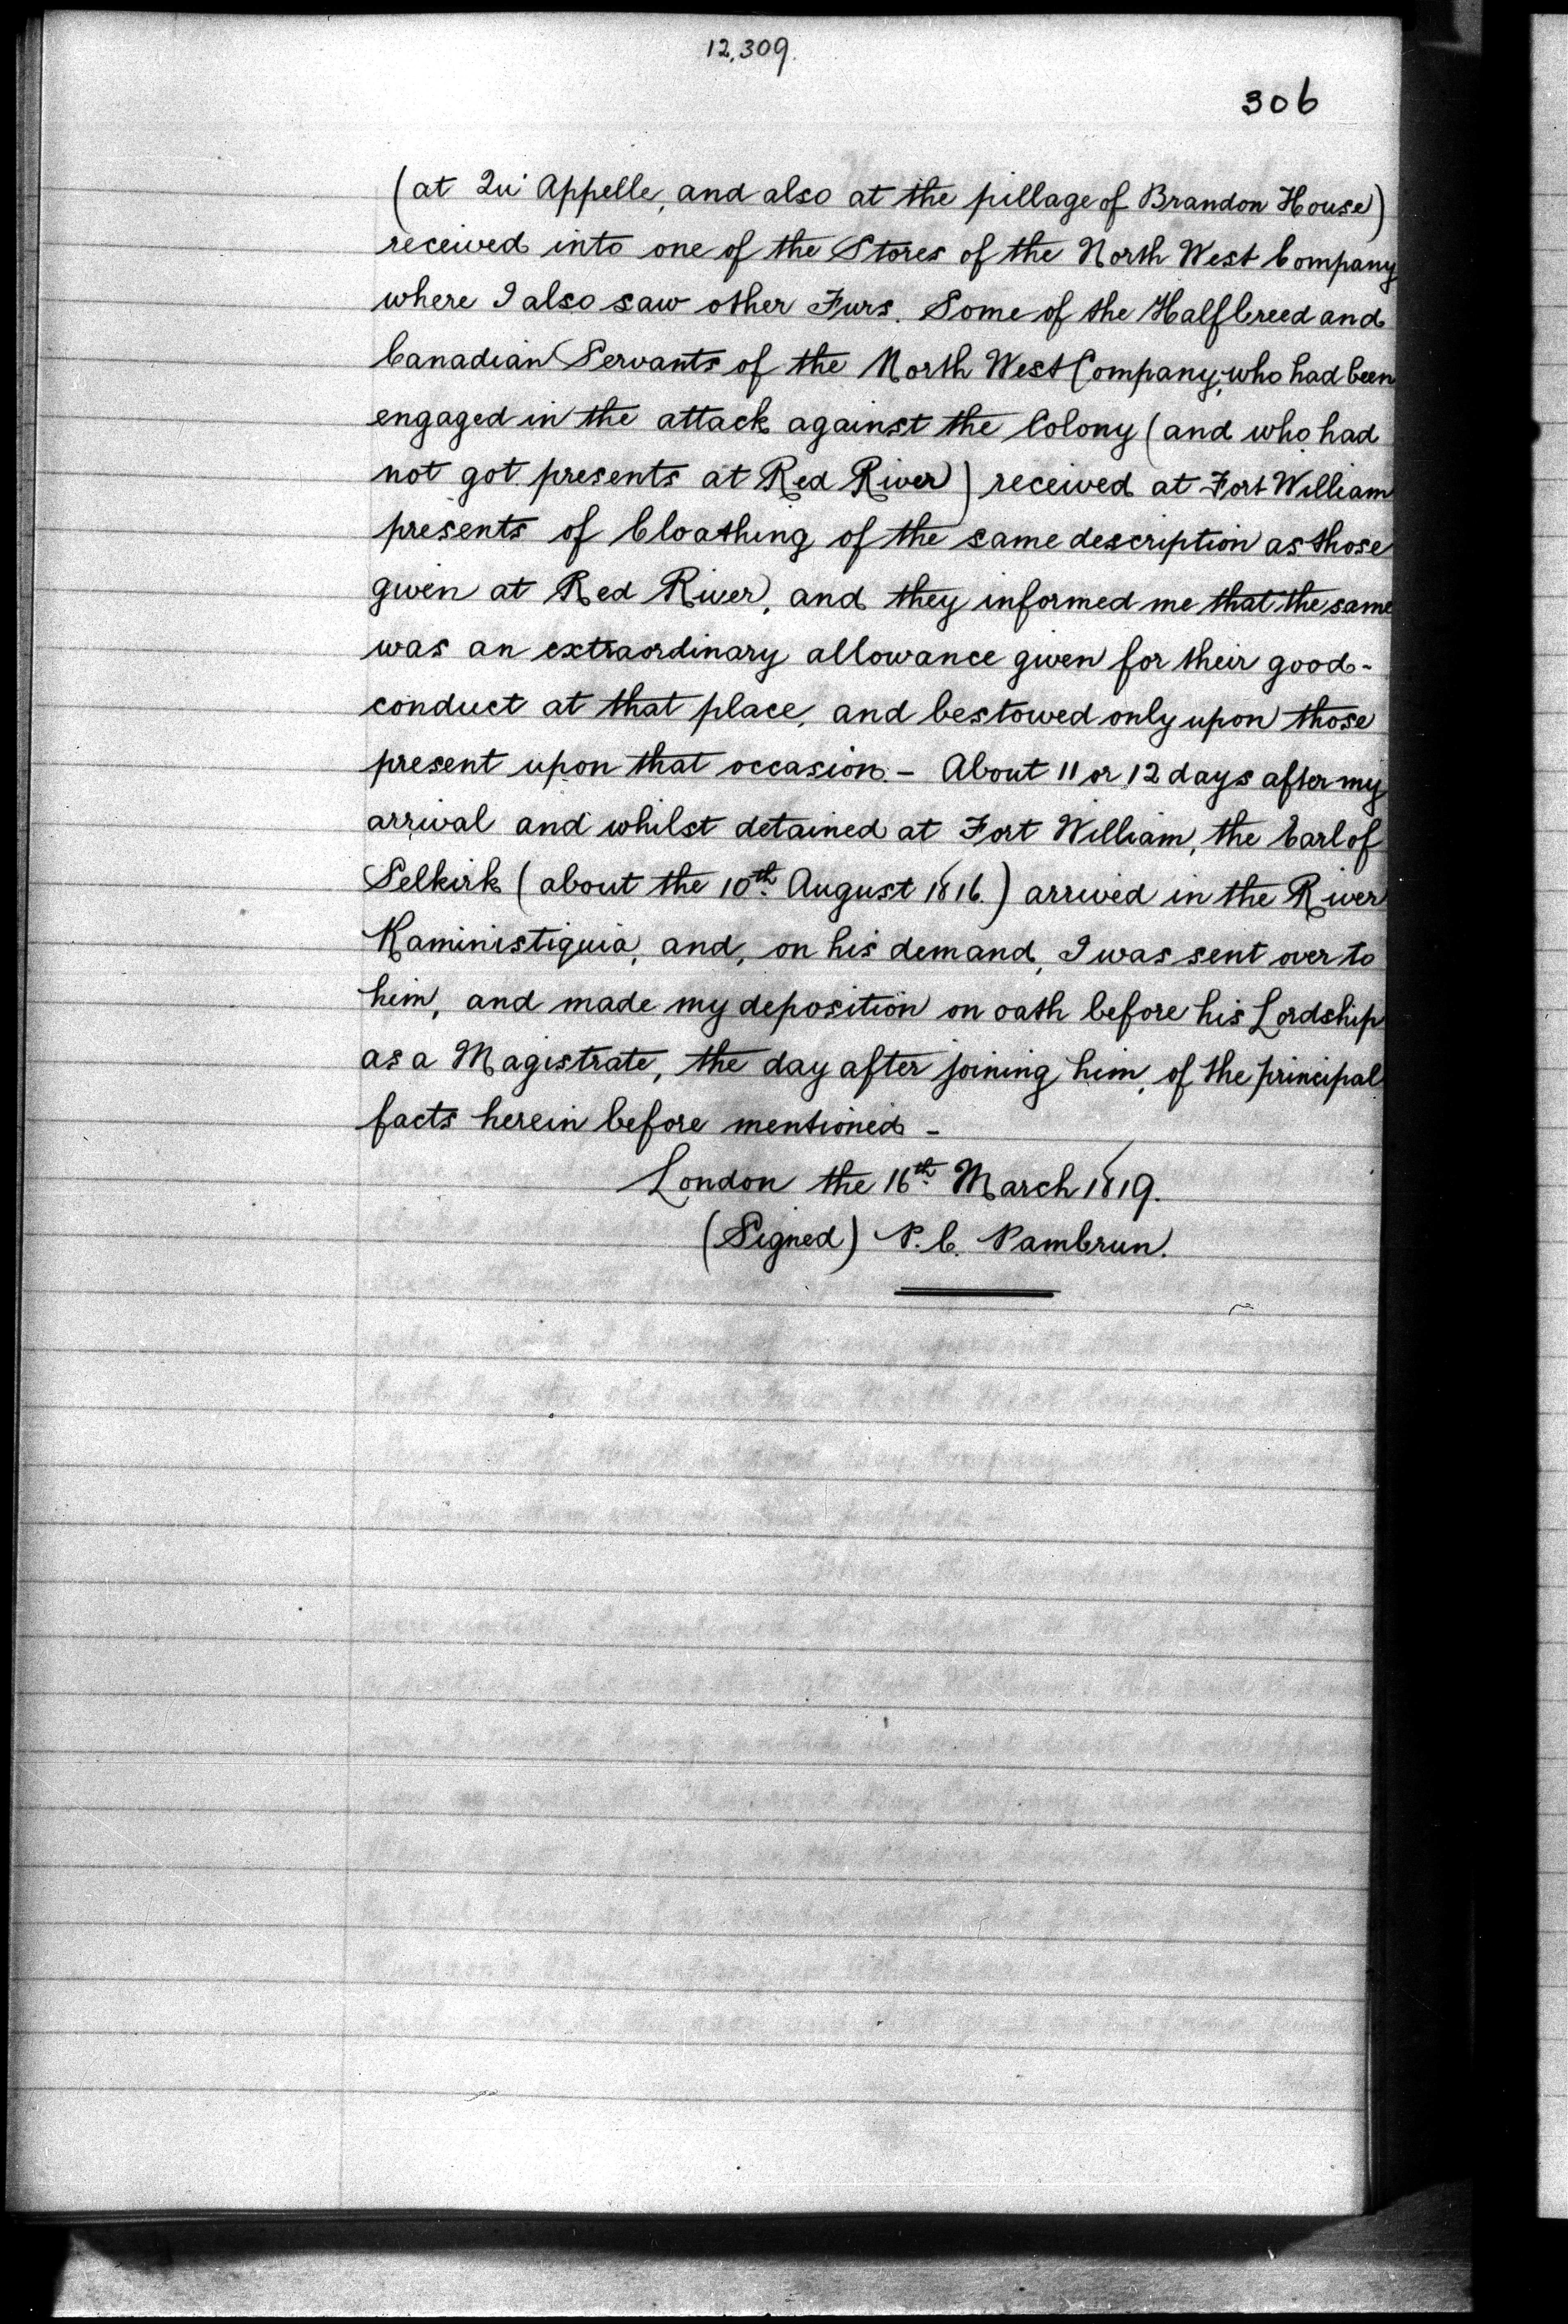 12,309.
306
(at Qu' Appelle, and also at the pillage of Brandon House)
received into one of the Stores of the North West Company
where I also saw other Furs. Some of the Halfbreed and
Canadian Servants of the North West Company, who had been
engaged in the attack against the Colony (and who had
not got presents at Red River) received at Fort William
presents of Cloathing of the same description as those
given at Red River, and they informed me that the same
was an extraordinary allowance given for their good-
conduct at that place, and bestowed only upon those
present upon that occasion. - About 11 or 12 days after my
arrival and whilst detained at Fort William, the Earl of
Selkirk (about the 10th. August 1816.) arrived in the River
Kaministiquia, and, on his demand, I was sent over to
him, and made my deposition on oath before his Lordship
as a Magistrate, the day after joining him, of the principal
facts herein before mentioned -
London the 16th. March 1819.
(Signed) P. C. Pambrun.